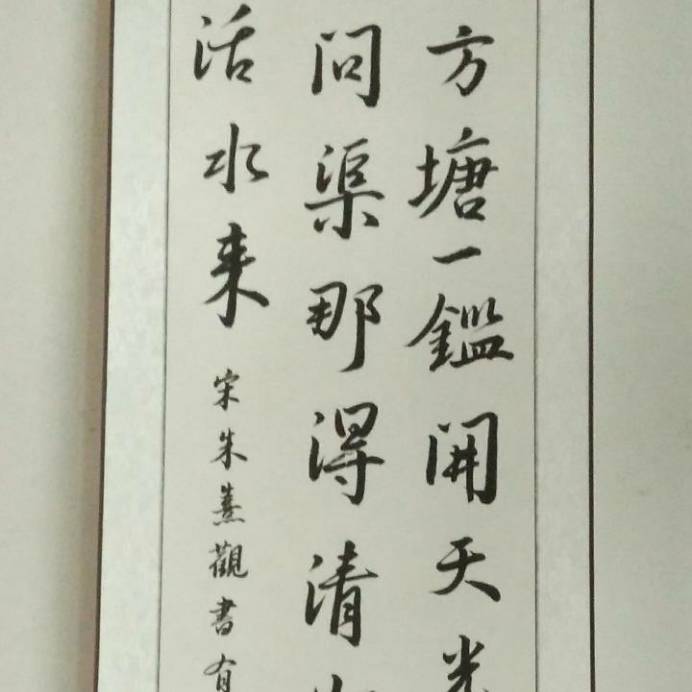 方塘一鑑開天光
問渠那得清
活水来
宋朱熹觀書有